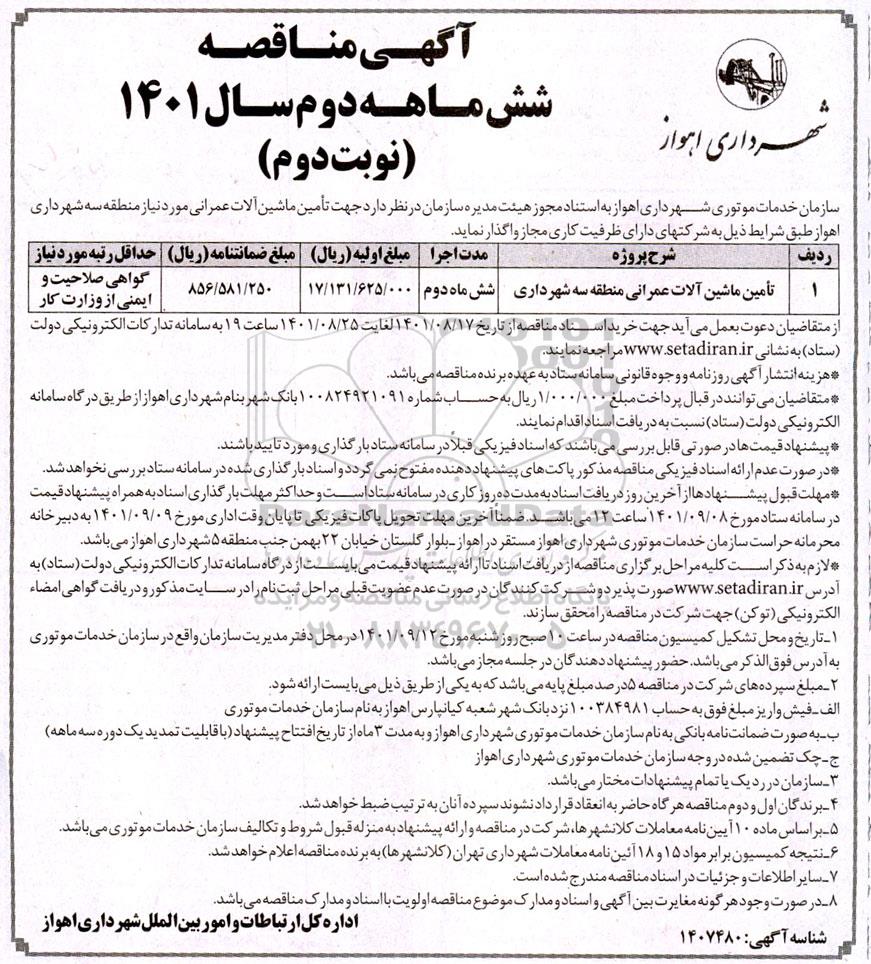 آگهی مناقصه
شش ماهه دوم سال ۱۴۰۱
(نوبت دوم)
شهرداری اهواز
سازمان خدمات موتوری شهرداری اهواز به استناد مجوز هیئت مدیره سازمان در نظر دارد جهت تأمین ماشین آلات عمرانی مورد نیاز منطقه سه شهرداری
اهواز طبق شرایط ذیل به شرکتهای دارای ظرفیت کاری مجاز واگذار نماید.
ردیف شرح پروژه مدت اجرا مبلغ اولیه (ریال) مبلغ ضمانتنامه (ریال) حداقل رتبه مورد نیاز
۱ تأمین ماشین آلات عمرانی منطقه سه شهرداری شش ماه دوم ۱۷/۱۳۱/۶۲۵/۰۰۰ ۸۵۶/۵۸۱/۲۵۰ گواهی صلاحیت و
ایمنی از وزارت کار
از متقاضیان دعوت بعمل می آید جهت خرید اسناد مناقصه از تاریخ ۱۴۰۱/۰۸/۱۷ لغایت ۱۴۰۱/۰۸/۲۵ ساعت ۱۹ به سامانه تدارکات الکترونیکی دولت
(ستاد) به نشانی www.setadiran.ir مراجعه نمایند.
*هزینه انتشار آگهی روزنامه و وجوه قانونی سامانه ستاد به عهده برنده مناقصه می باشد.
*متقاضیان می توانند در قبال پرداخت مبلغ ۱/۰۰۰/۰۰۰ ریال به حساب شماره ۱۰۰۸۲۴۹۲۱۰۹۱ بانک شهر بنام شهرداری اهواز از طریق درگاه سامانه
الکترونیکی دولت (ستاد) نسبت به دریافت اسناد اقدام نمایند.
*پیشنهاد قیمت ها در صورتی قابل بررسی می باشند که اسناد فیزیکی قبلاً در سامانه ستاد بارگذاری و مورد تایید باشند.
*در صورت عدم ارائه اسناد فیزیکی مناقصه مذکور پاکت های پیشنهاد دهنده مفتوح نمی گردد و اسناد بارگذاری شده در سامانه ستاد بررسی نخواهد شد.
*مهلت قبول پیشنهادها از آخرین روز دریافت اسناد به مدت ده روز کاری در سامانه ستاد است و حداکثر مهلت بارگذاری اسناد به همراه پیشنهاد قیمت
در سامانه ستاد مورخ ۱۴۰۱/۰۹/۰۸ ساعت ۱۲ می باشد. ضمناً آخرین مهلت تحویل پاکات فیزیکی تا پایان وقت اداری مورخ ۱۴۰۱/۰۹/۰۹ به دبیرخانه
محرمانه حراست سازمان خدمات موتوری شهرداری اهواز مستقر در اهواز - بلوار گلستان خیابان ۲۲ بهمن جنب منطقه ۵ شهرداری اهواز می باشد.
*لازم به ذکر است کلیه مراحل برگزاری مناقصه از دریافت اسناد تا ارائه پیشنهاد قیمت می بایست از درگاه سامانه تدارکات الکترونیکی دولت (ستاد) به
آدرس www.setadiran.ir صورت پذیرد و شرکت کنندگان در صورت عدم عضویت قبلی مراحل ثبت نام را در سایت مذکور و دریافت گواهی امضاء
الکترونیکی (توکن) جهت شرکت در مناقصه را محقق سازند.
۱- تاریخ و محل تشکیل کمیسیون مناقصه در ساعت ۱۰ صبح روز شنبه مورخ ۱۴۰۱/۰۹/۱۲ در محل دفتر مدیریت سازمان واقع در سازمان خدمات موتوری
به آدرس فوق الذکر می باشد. حضور پیشنهاد دهندگان در جلسه مجاز می باشد.
۲- مبلغ سپرده های شرکت در مناقصه ۵ درصد مبلغ پایه می باشد که به یکی از طریق ذیل می بایست ارائه شود.
الف- فیش واریز مبلغ فوق به حساب ۱۰۰۳۸۴۹۸۱ نزد بانک شهر شعبه کیانپارس اهواز به نام سازمان خدمات موتوری
ب- به صورت ضمانت نامه بانکی به نام سازمان خدمات موتوری شهرداری اهواز و به مدت ۳ ماه از تاریخ افتتاح پیشنهاد (با قابلیت تمدید یک دوره سه ماهه)
ج- چک تضمین شده در وجه سازمان خدمات موتوری شهرداری اهواز
۳- سازمان در رد یک یا تمام پیشنهادات مختار می باشد.
۴- برندگان اول و دوم مناقصه هرگاه حاضر به انعقاد قرارداد نشوند سپرده آنان به ترتیب ضبط خواهد شد.
۵- بر اساس ماده ۱۰ آیین نامه معاملات کلانشهرها، شرکت در مناقصه و ارائه پیشنهاد به منزله قبول شروط و تکالیف سازمان خدمات موتوری می باشد.
۶- نتیجه کمیسیون برابر مواد ۱۵ و ۱۸ آئین نامه معاملات شهرداری تهران (کلانشهرها) به برنده مناقصه اعلام خواهد شد.
۷- سایر اطلاعات و جزئیات در اسناد مناقصه مندرج شده است.
۸- در صورت وجود هرگونه مغایرت بین آگهی و اسناد و مدارک موضوع مناقصه اولویت با اسناد و مدارک مناقصه می باشد.
اداره کل ارتباطات و امور بین الملل شهرداری اهواز
شناسه آگهی: ۱۴۰۷۴۸۰
ParsNamadData
پایگاه اطلاع رسانی مناقصه و مزایده
۰۲۱-۸۸۳۴۹۶۷۰-۵